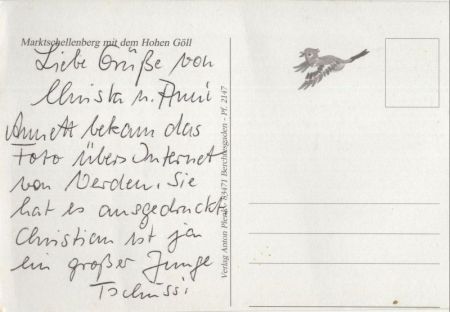 Marktschellenberg mit dem Hohen Göll
Liebe Grüße von
Christa u.
Annett bekam das
Foto übers Internet
von Verden. Sie
hat es ausgedruckt
Christian ist ja
ein großer Junge
Tschüssi
Verlag Anton Plenk, 83471 Berchtesgaden - Pf. 2147